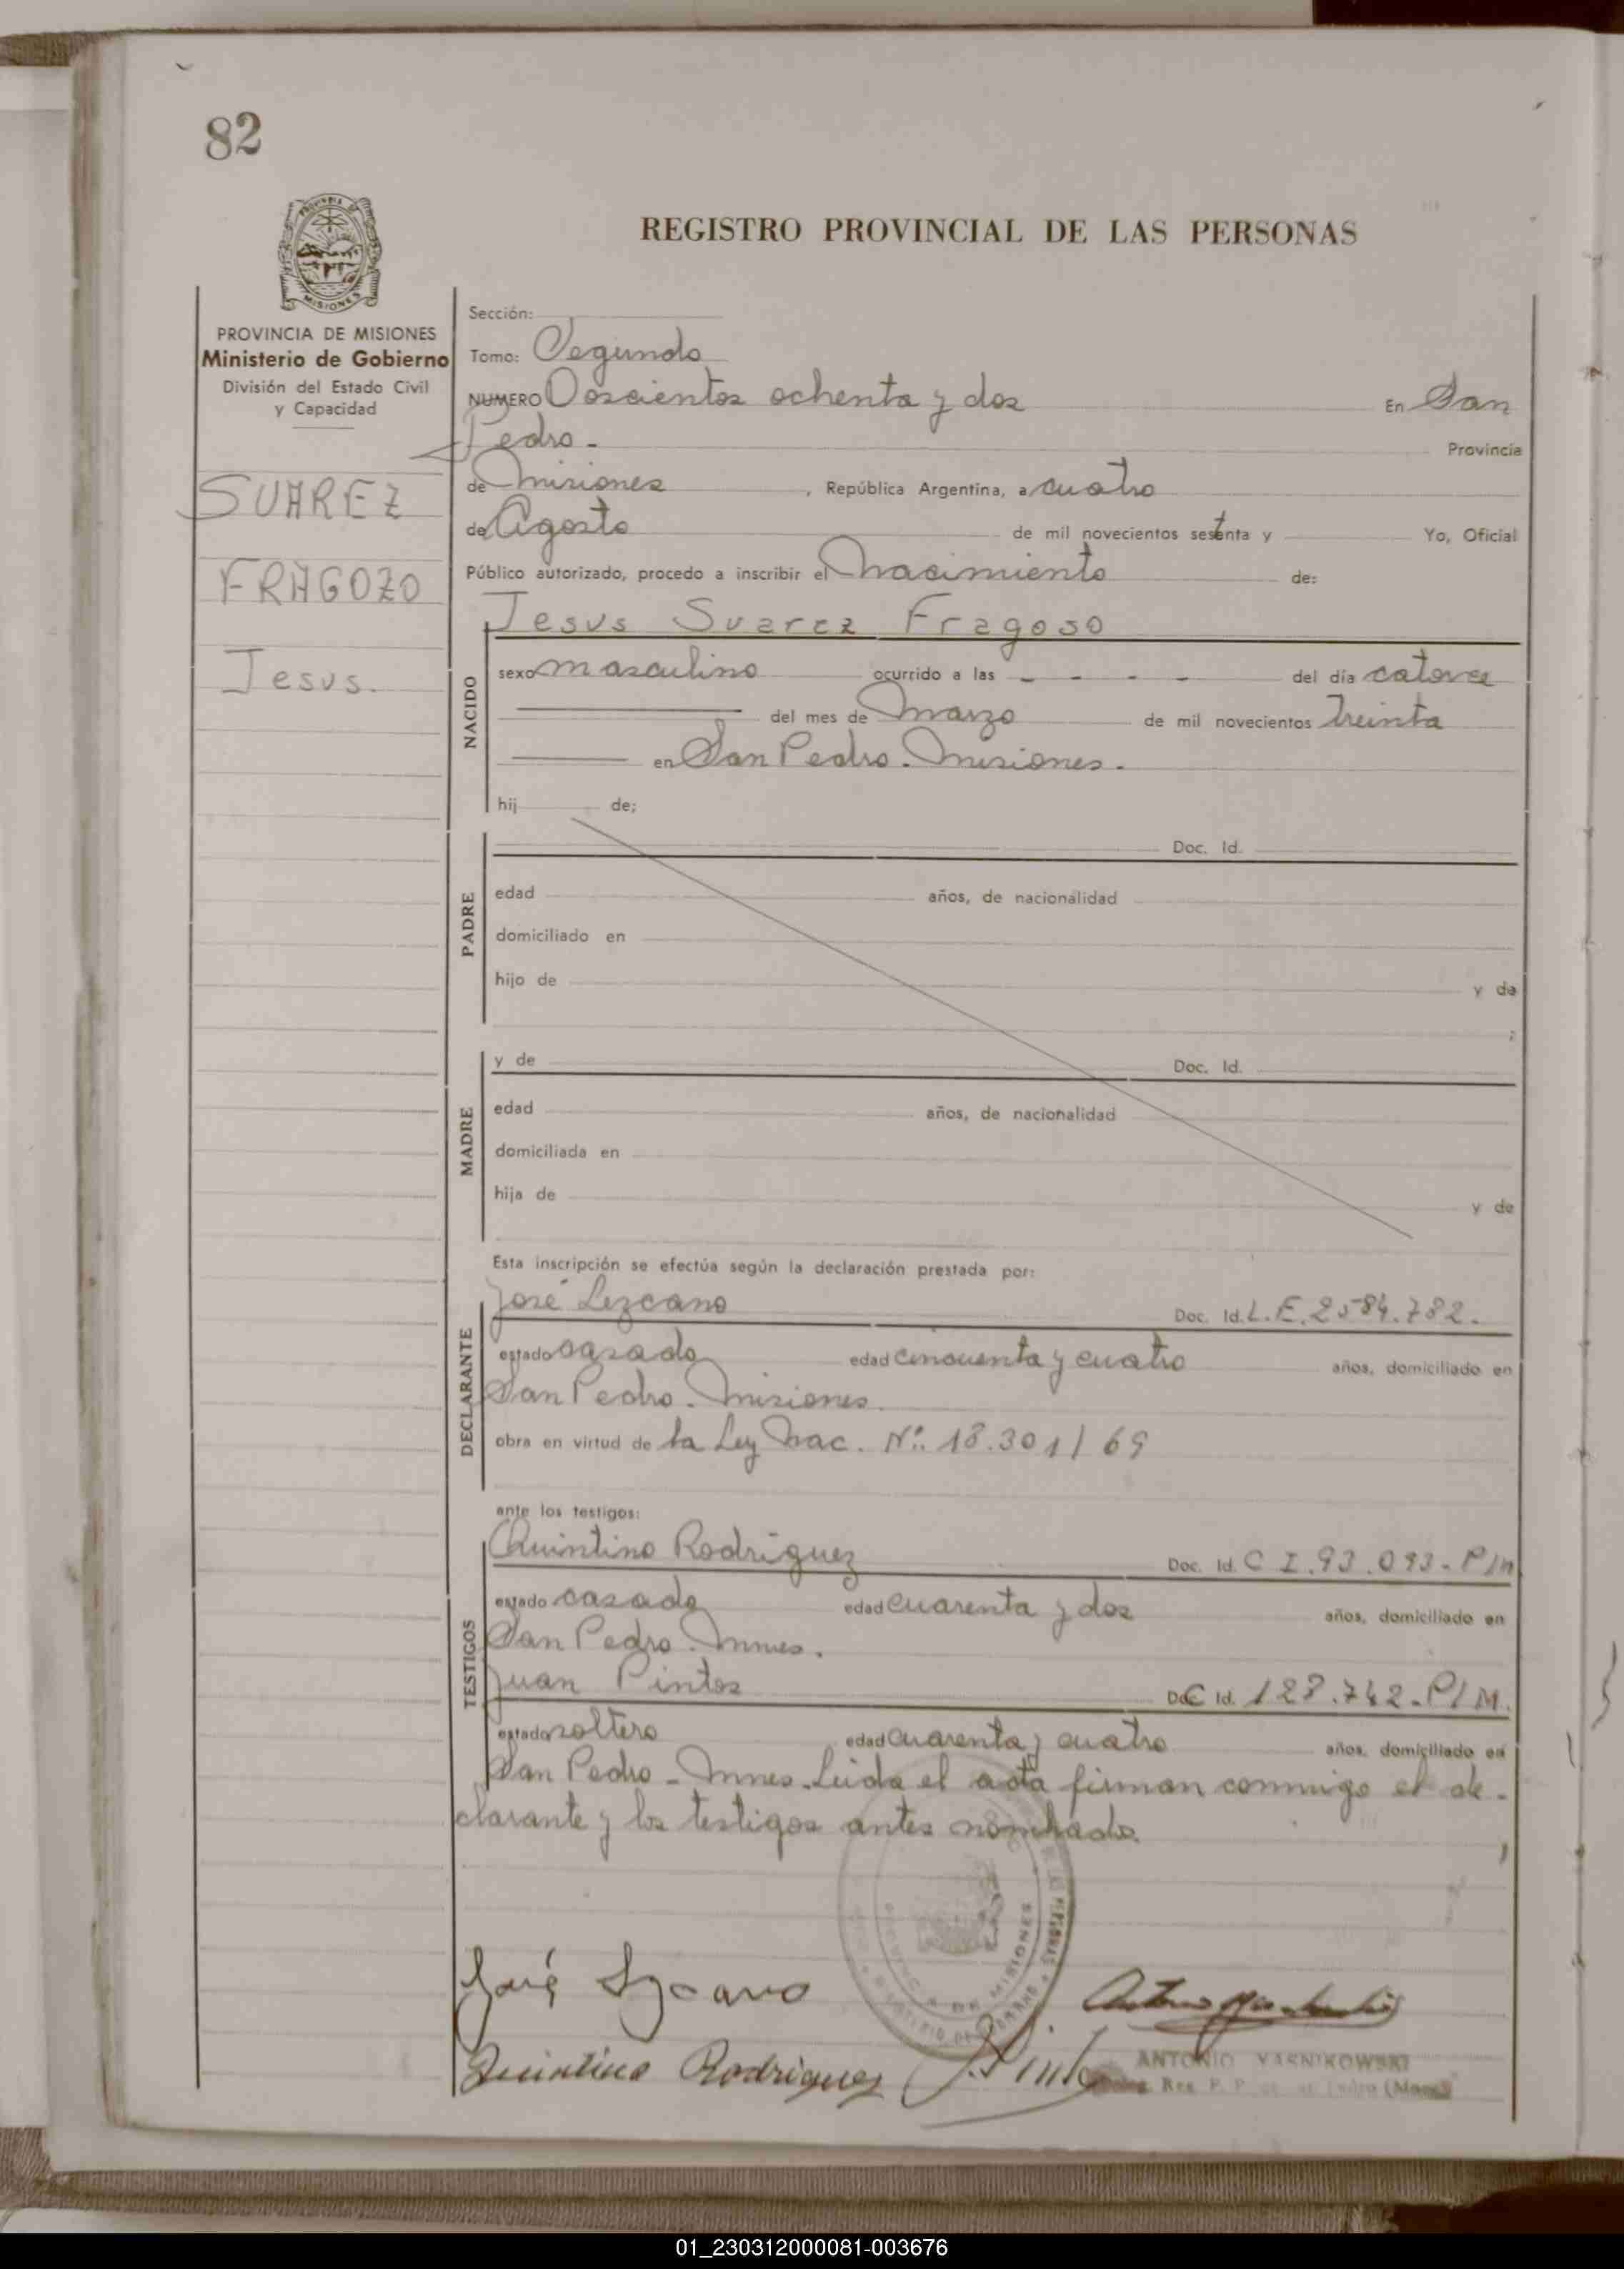 82
REGISTRO PROVINCIAL DE LAS PERSONAS
PROVINCIA DE
MISIONES
PROVINCIA DE MISIONES
Ministerio de Gobierno
División del Estado Civil
y Capacidad
SUAREZ
FRAGOZO
Jesus.
Sección:
Tomo: Segundo
NUMERO Doscientos ochenta y dos En San
Pedro - Provincia
de Misiones, República Argentina, a cuatro
de Agosto de mil novecientos setenta y Yo, Oficial
Público autorizado, procedo a inscribir el Nacimiento de:
NACIDO
Jesus Suarez Fragoso
sexo masculino ocurrido a las - - - - del día catorce
del mes de Marzo de mil novecientos treinta
en San Pedro. Misiones.
hij de;
PADRE
Doc. Id.
edad años, de nacionalidad
domiciliado en
hijo de y de
;
MADRE
y de Doc. Id.
edad años, de nacionalidad
domiciliada en
hija de y de
Esta inscripción se efectúa según la declaración prestada por:
DECLARANTE
José Lezcano Doc. Id. L.E. 2584.782.
estado casado edad cincuenta y cuatro años, domiciliado en
San Pedro. Misiones.
obra en virtud de la Ley Nac. Nº. 18.301/69
ante los testigos:
TESTIGOS
Quintino Rodriguez Doc. Id. C I. 93.093-P/M
estado casado edad cuarenta y dos años, domiciliado en
San Pedro. Mnes.
Juan Pintos Doc. Id. 128.742-P/M.
estado soltero edad cuarenta y cuatro años, domiciliado en
San Pedro - Mnes. Leida el acta firman conmigo el de-
clarante y los testigos antes nombrado.
José Lezcano
Quintino Rodriguez J. Pinto
PROVINCIA DE MISIONES
ANTONIO YASNIKOWSKI